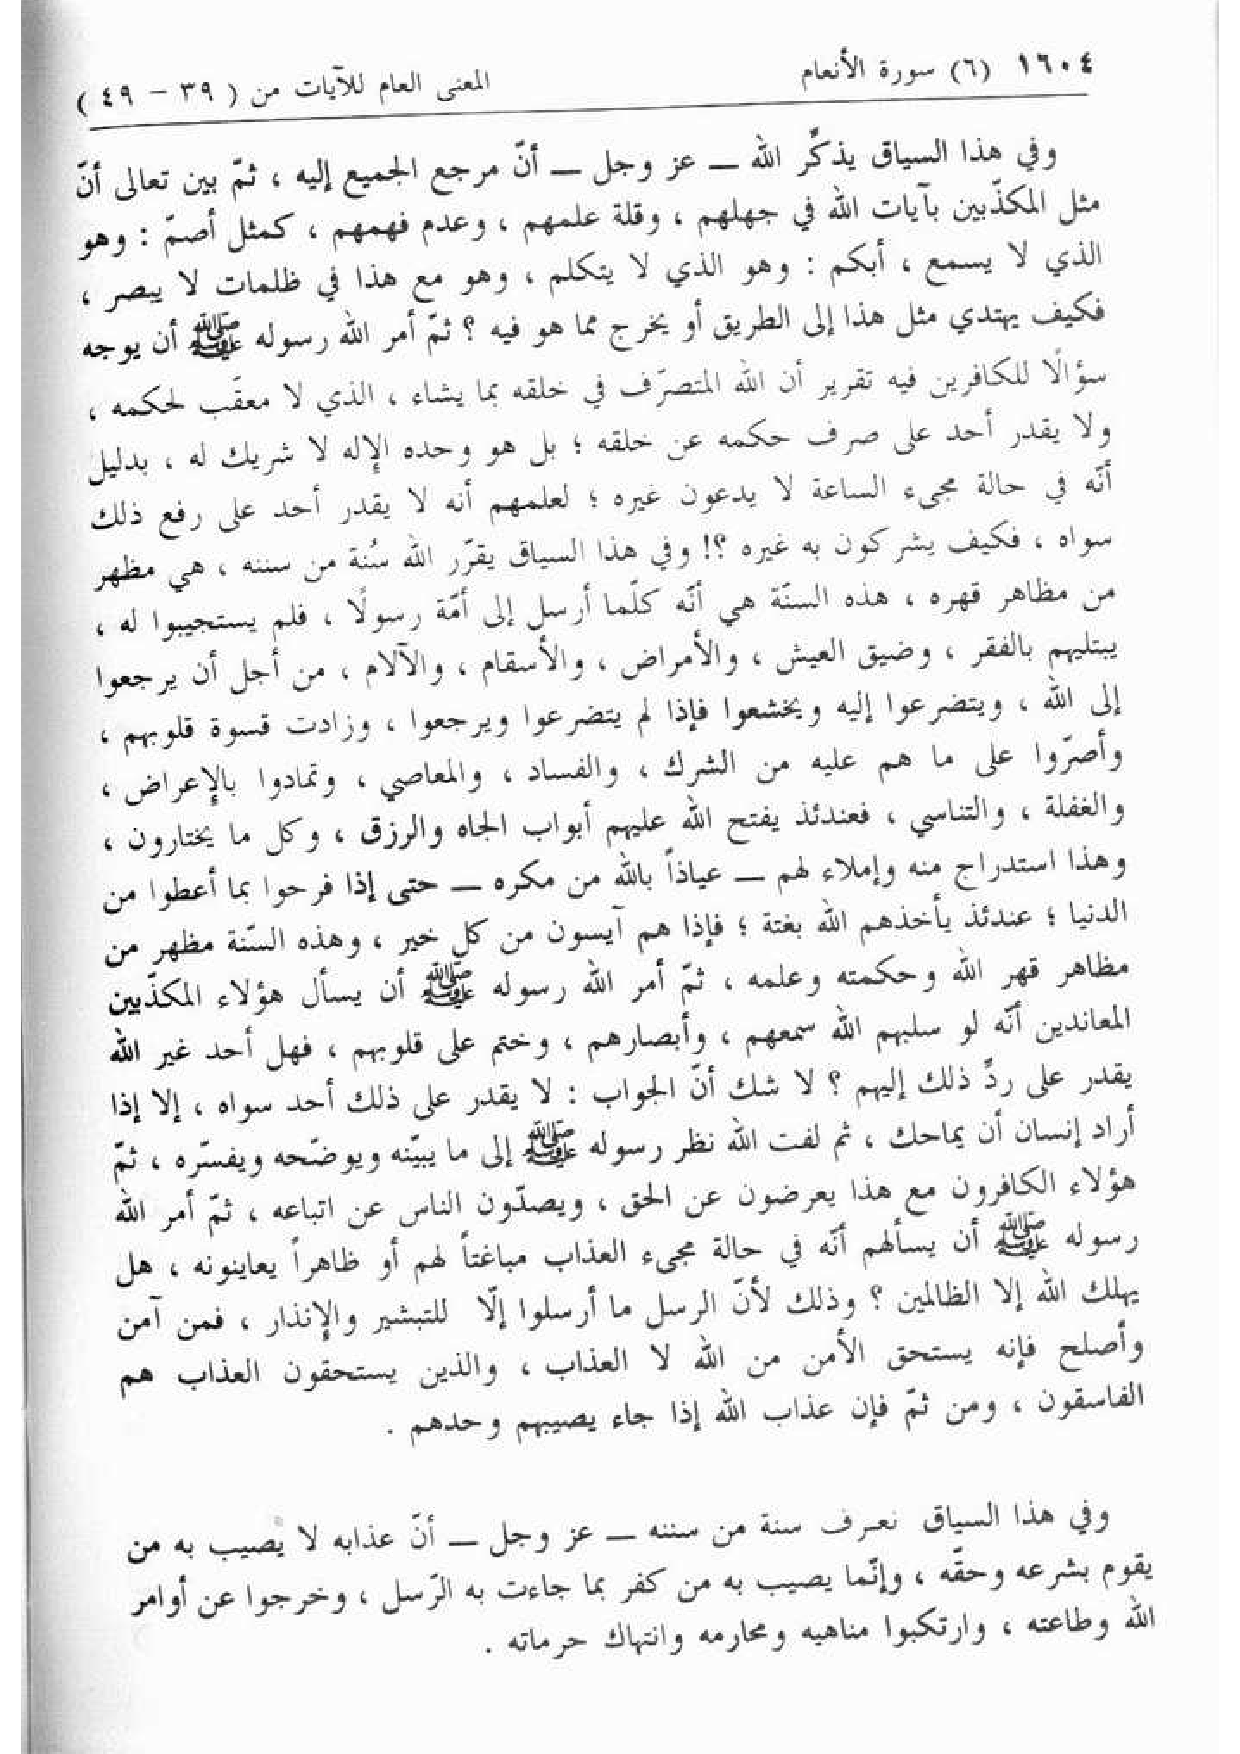 ١٦٠٤ (٦) سورة الأنعام المعنى العام للآيات من ( ٣٩ – ٤٩ )
وفي هذا السياق يذكِّر الله ــ عز وجل ــ أنّ مرجع الجميع إليه ، ثمّ بين تعالى أنّ
مثل المكذّبين بآيات الله في جهلهم ، وقلة علمهم ، وعدم فهمهم ، كمثل أصمّ : وهو
الذي لا يسمع ، أبكم : وهو الذي لا يتكلم ، وهو مع هذا في ظلمات لا يبصر ،
فكيف يهتدي مثل هذا إلى الطريق أو يخرج مما هو فيه ؟ ثمّ أمر الله رسوله ﷺ أن يوجه
سؤالًا للكافرين فيه تقرير أن الله المتصرّف في خلقه بما يشاء ، الذي لا معقّب لحكمه ،
ولا يقدر أحد على صرف حكمه عن خلقه ؛ بل هو وحده الإله لا شريك له ، بدليل
أنّه في حالة مجيء الساعة لا يدعون غيره ؛ لعلمهم أنه لا يقدر أحد على رفع ذلك
سواه ، فكيف يشركون به غيره ؟! وفي هذا السياق يقرّر الله سُنة من سننه ، هي مظهر
من مظاهر قهره ، هذه السنّة هي أنّه كلّما أرسل إلى أمّة رسولًا ، فلم يستجيبوا له ،
يبتليهم بالفقر ، وضيق العيش ، والأمراض ، والأسقام ، والآلام ، من أجل أن يرجعوا
إلى الله ، ويتضرعوا إليه ويخشعوا فإذا لم يتضرعوا ويرجعوا ، وزادت قسوة قلوبهم ،
وأصرّوا على ما هم عليه من الشرك ، والفساد ، والمعاصي ، وتمادوا بالإعراض ،
والغفلة ، والتناسي ، فعندئذ يفتح الله عليهم أبواب الجاه والرزق ، وكل ما يختارون ،
وهذا استدراج منه وإملاء لهم ــ عياذاً بالله من مكره ــ حتى إذا فرحوا بما أعطوا من
الدنيا ؛ عندئذ يأخذهم الله بغتة ؛ فإذا هم آيسون من كل خير ، وهذه السّنة مظهر من
مظاهر قهر الله وحكمته وعلمه ، ثمّ أمر الله رسوله ﷺ أن يسأل هؤلاء المكذّبين
المعاندين أنّه لو سلبهم الله سمعهم ، وأبصارهم ، وختم على قلوبهم ، فهل أحد غير الله
يقدر على ردِّ ذلك إليهم ؟ لا شك أنّ الجواب : لا يقدر على ذلك أحد سواه ، إلا إذا
أراد إنسان أن يماحك ، ثم لفت الله نظر رسوله ﷺ إلى ما يبيّنه ويوضّحه ويفسّره ، ثمّ
هؤلاء الكافرون مع هذا يعرضون عن الحق ، ويصدّون الناس عن اتباعه ، ثمّ أمر الله
رسوله ﷺ أن يسألهم أنّه في حالة مجيء العذاب مباغتاً لهم أو ظاهراً يعاينونه ، هل
يهلك الله إلا الظالمين ؟ وذلك لأنّ الرسل ما أرسلوا إلّا للتبشير والإنذار ، فمن آمن
وأصلح فإنه يستحق الأمن من الله لا العذاب ، والذين يستحقون العذاب هم
الفاسقون ، ومن ثمّ فإن عذاب الله إذا جاء يصيبهم وحدهم .
وفي هذا السياق نعرف سنة من سننه ــ عز وجل ــ أنّ عذابه لا يصيب به من
يقوم بشرعه وحقّه ، وإنّما يصيب به من كفر بما جاءت به الرّسل ، وخرجوا عن أوامر
الله وطاعته ، وارتكبوا مناهيه ومحارمه وانتهاك حرماته .